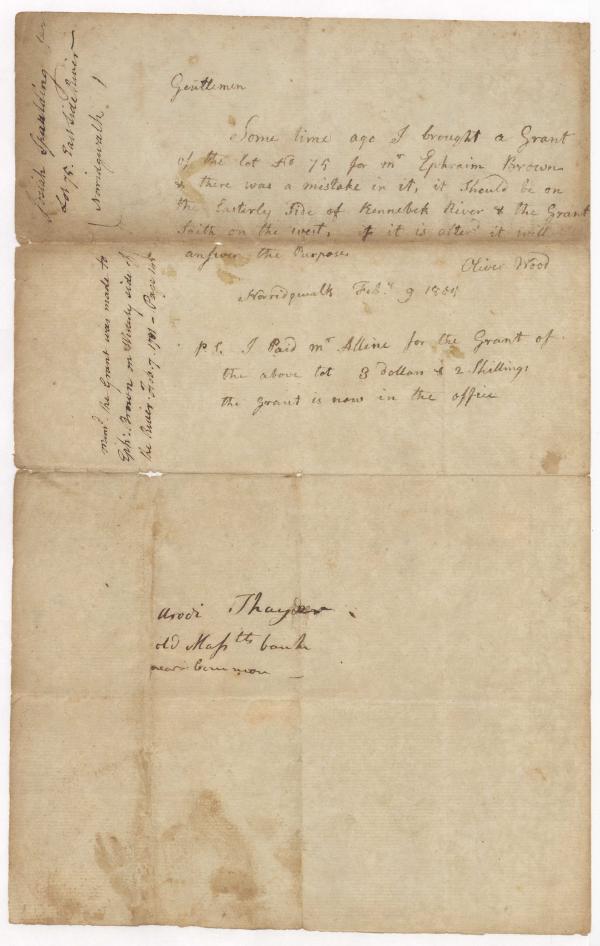 Gentlemen
Some time ago I brought a Grant
of the lot No 75 for mr Ephraim Brown
& there was a mistake in it, it should be on
the Easterly Side of Kennebek River & the Grant
saith on the west, if it is alterd it will
answer the Purpose
Oliver Wood
Norridgwalk Feby 9
P.S. I Paid mr Alline for the Grant of
the above lot 3 dollars & 2 Shillings
the Grant is now in the office
Spaulding
Lot 75. East Side River
Norridgwalk
the Grant was made to
Eph. Brown on side of
the River Feb. 7. Page
Arodi Thayer
old Masstts bank
near Common